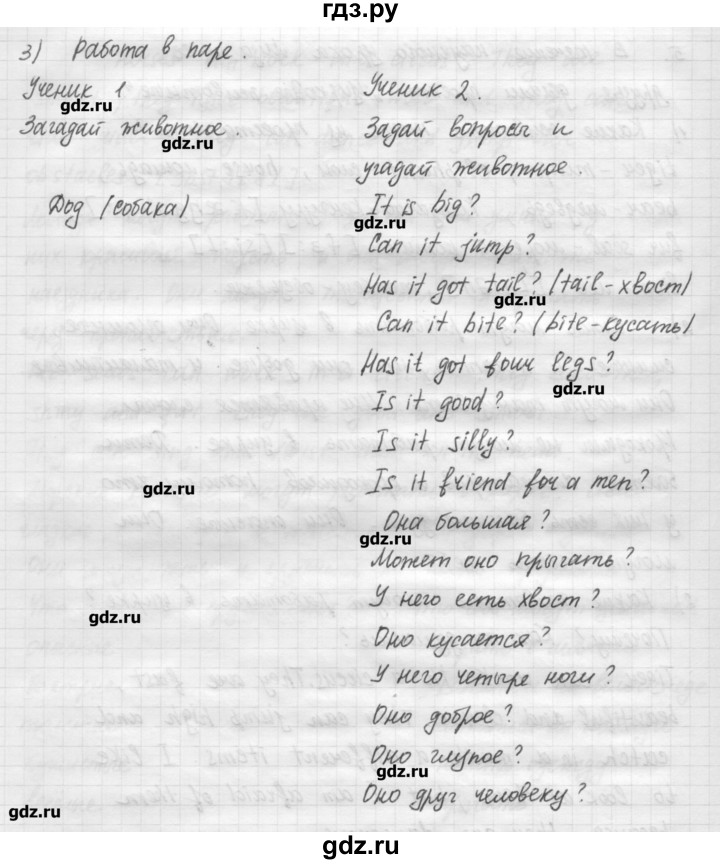 гдз.ру
3) Работа в паре.
Ученик 1 Ученик 2.
gdz.ru
Загадай животное. Задай вопросы и
gdz.ru
угадай животное.
Дод (собака) It is big?
gdz.ru
Can it jump?
Has it got tail? (tail-хвост)
gdz.ru
Can it bite? (bite-кусать)
Has it got four legs?
gdz.ru
Is it good?
Is it silly?
Is it friend for a men?
gdz.ru
Она большая?
gdz.ru
Может оно прыгать?
У него есть хвост?
gdz.ru
Оно кусается?
У него четыре ноги?
Оно доброе?
Оно глупое?
gdz.ru
Оно друг человеку?
gdz.ru
гдз.ру